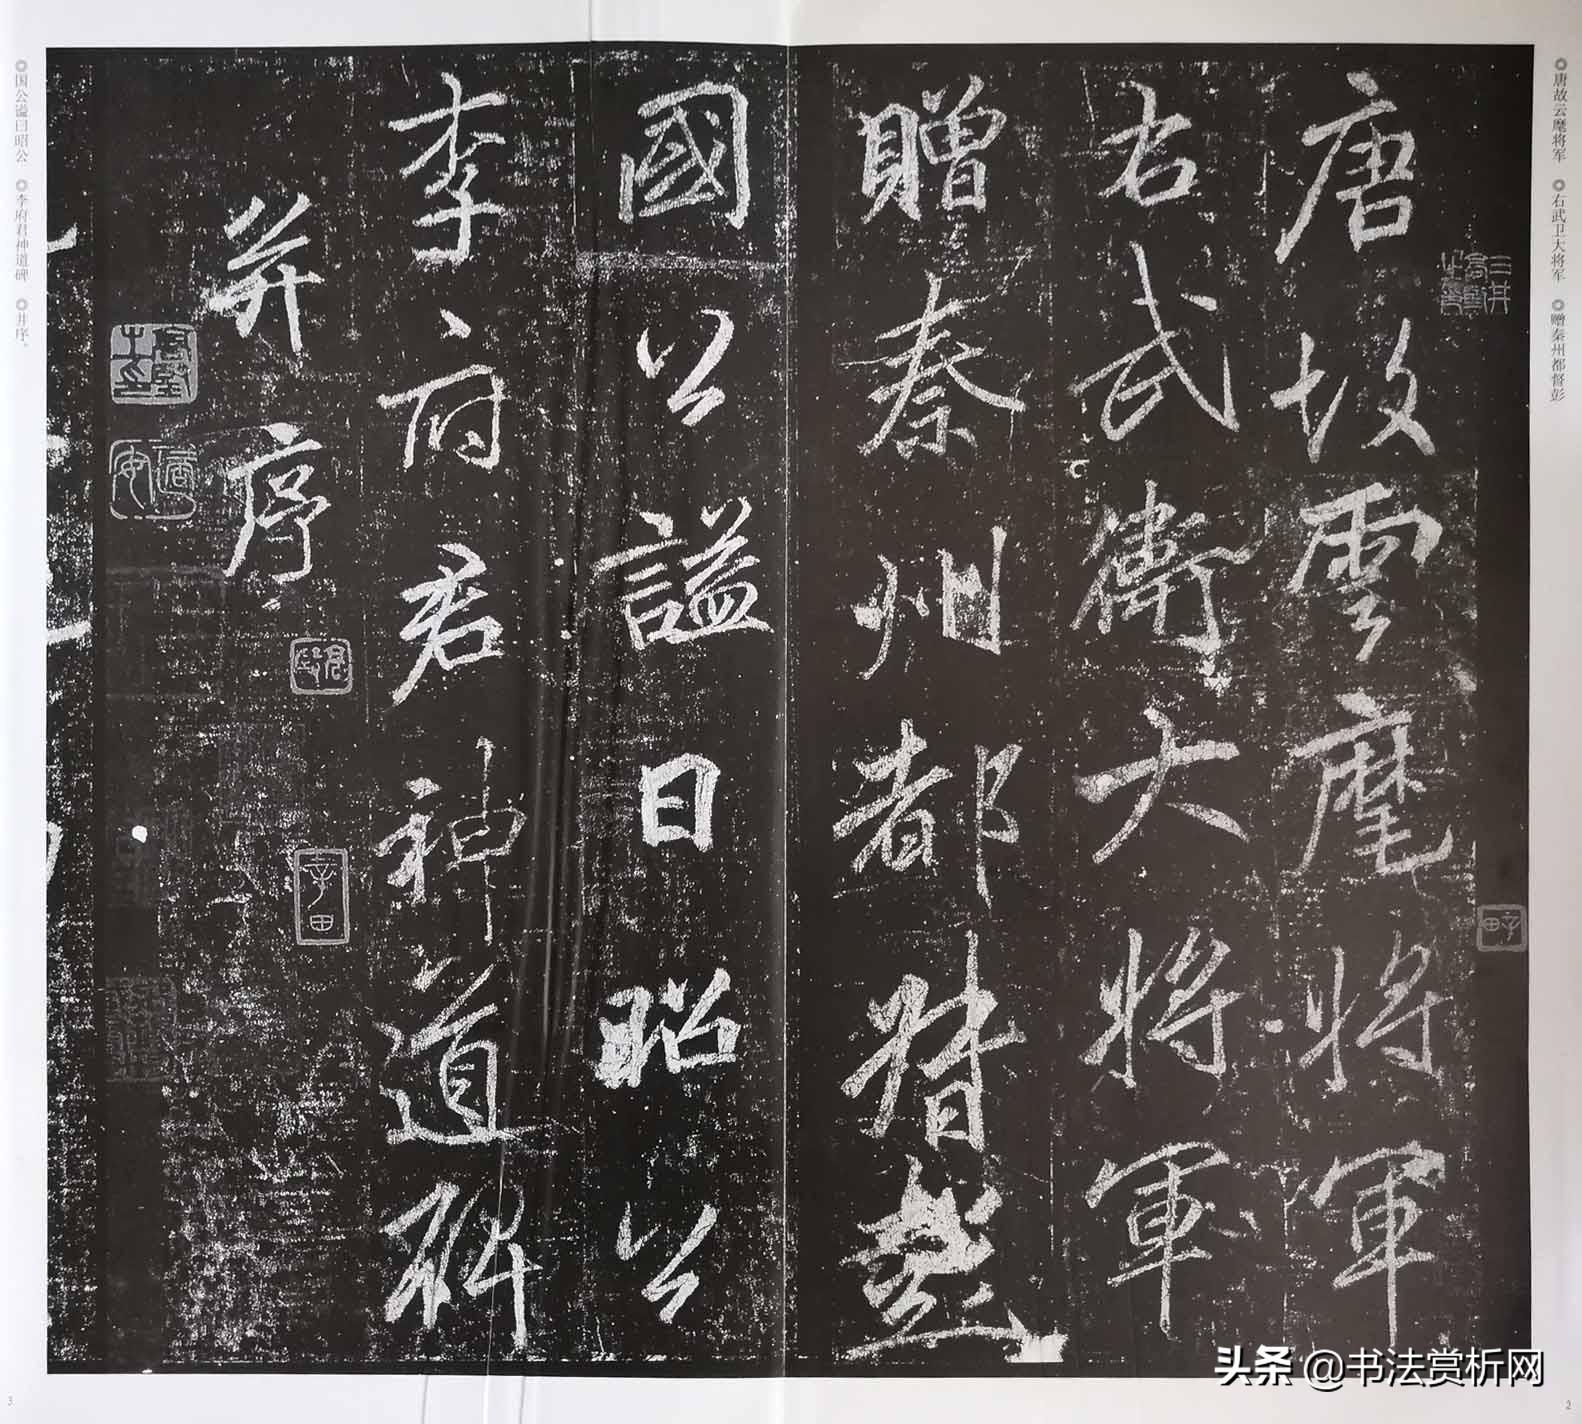 ◎唐故云麾将军 ◎右武卫大将军 ◎赠秦州都督彭
唐故雲麾將軍
右武衛大將軍
贈秦州都督彭
國公謚曰昭公
李府君神道碑
并序
◎国公谥曰昭公 ◎李府君神道碑 ◎并序。
头条 @书法赏析网
2
3